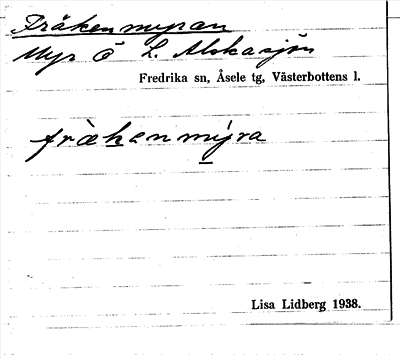 Fräkenmyran
Myr ö L. Alskasjön
Fredrika sn, Åsele tg, Västerbottens l.
fræ̀kenmýra
Lisa Lidberg 1938.